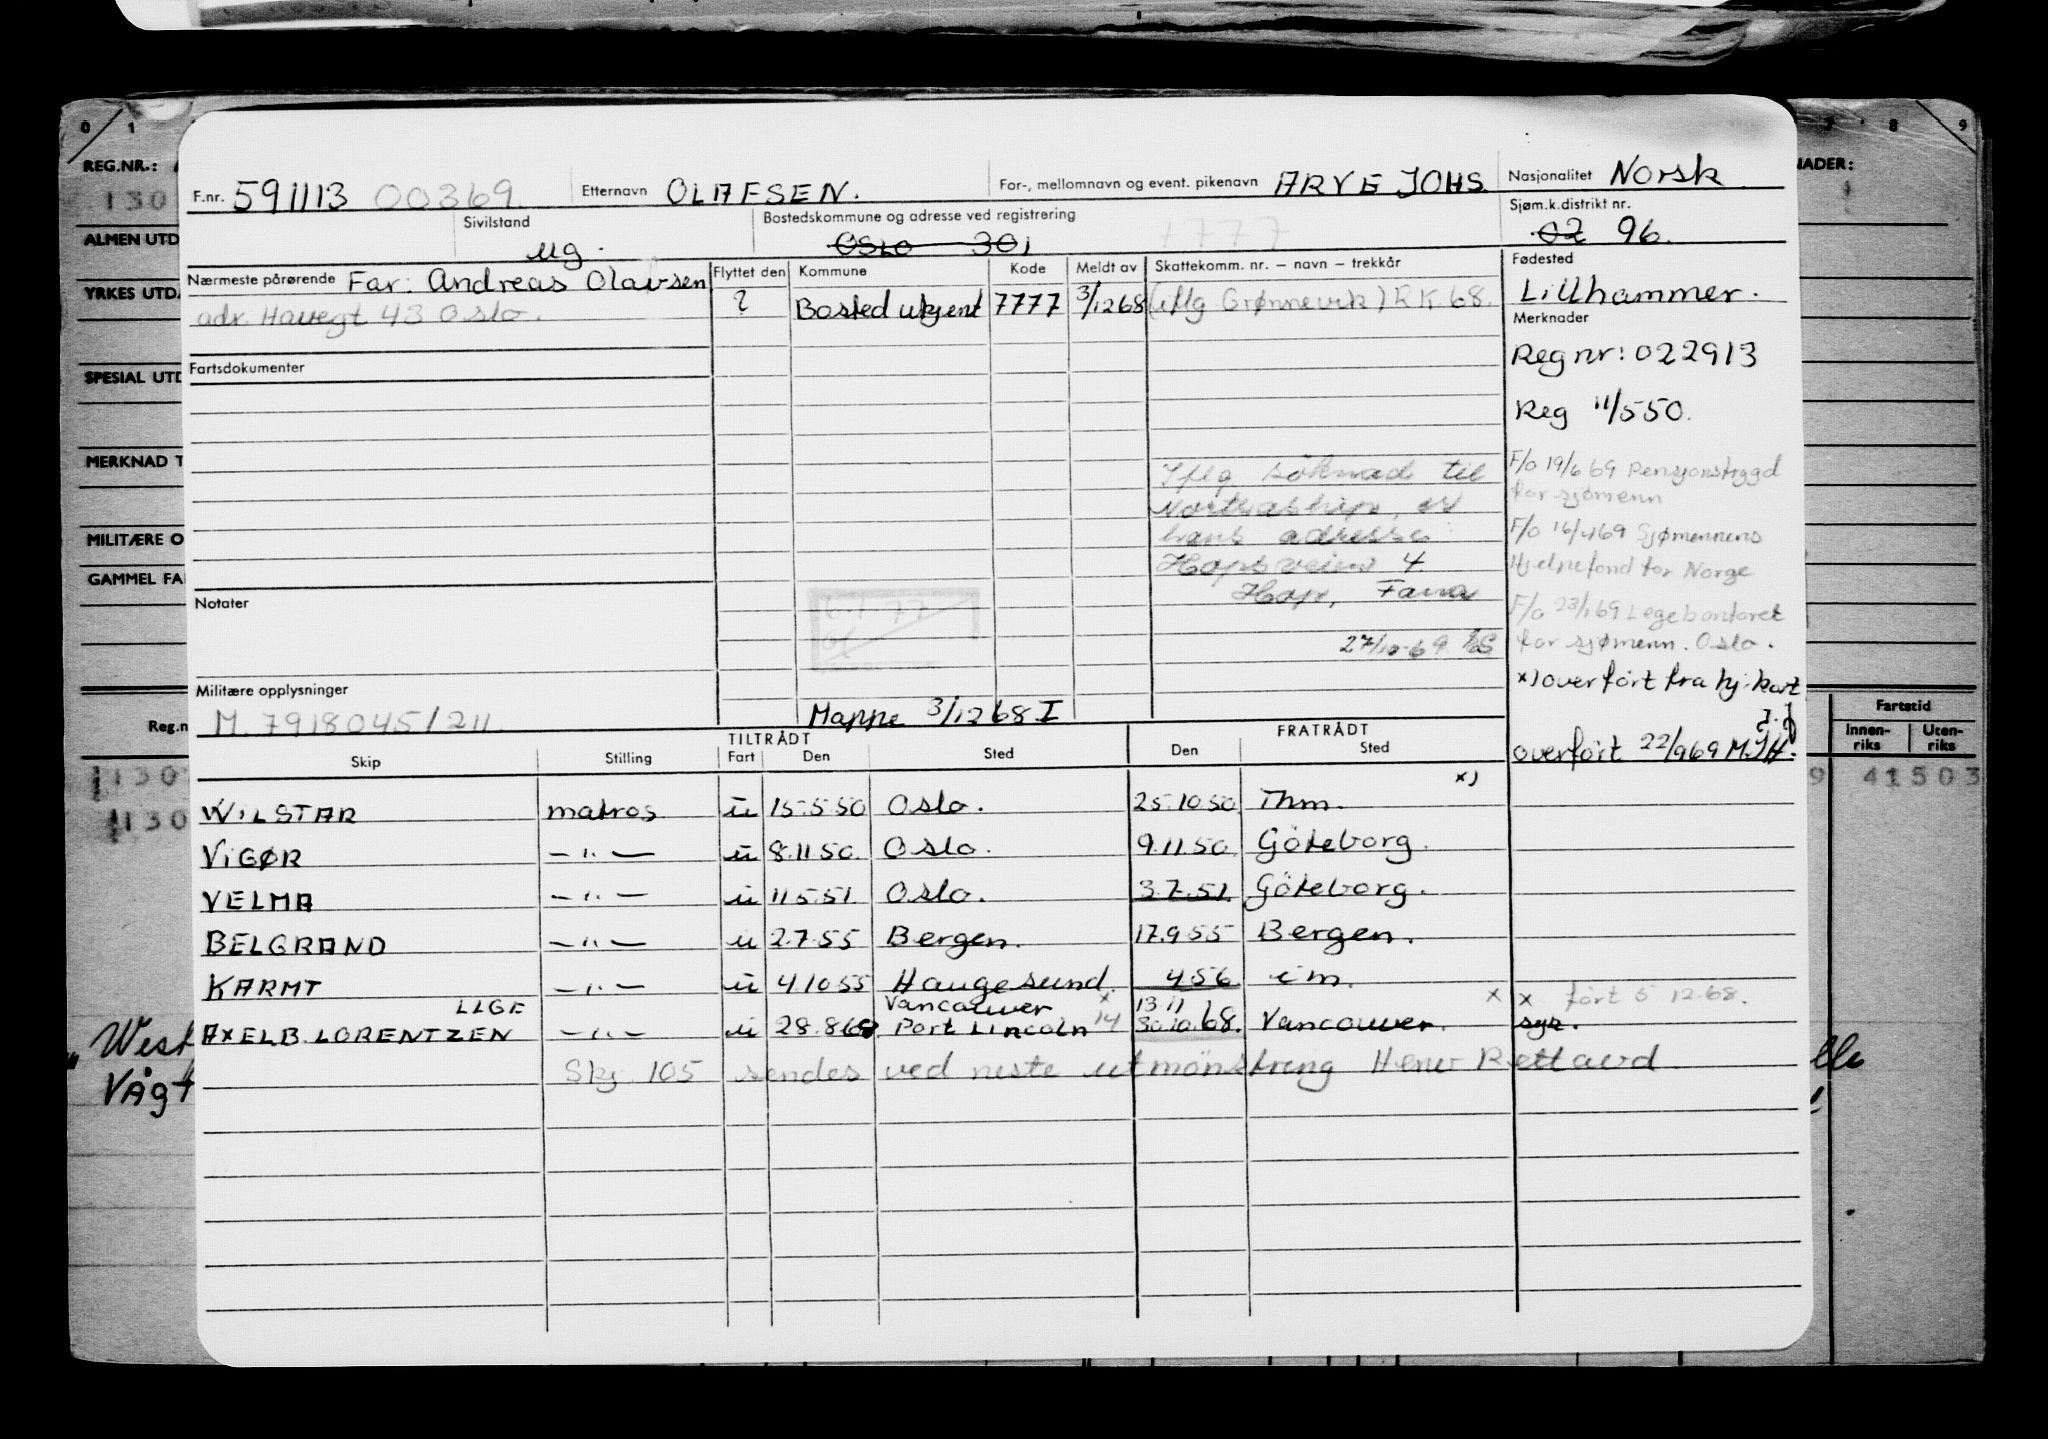 0 1 7 8 9
REG.NR.: NADER:
130
ALMEN UTD
YRKES UTDA
SPESIAL UTD
MERKNAD T
MILITÆRE O
GAMMEL FA
Reg.n
F.nr. 591113 00369 Etternavn OLAFSEN. For-, mellomnavn og event. pikenavn ARVE JOHS Nasjonalitet Norsk
Sivilstand ug. Bostedskommune og adresse ved registrering Oslo 301 7777 Sjøm.k.distrikt nr. 02 96.
Nærmeste pårørende Far: Andreas Olavsen Flyttet den Kommune Kode Meldt av Skattekomm. nr. – navn – trekkår Fødested Lillhammer.
adr. Havegt 43 Oslo. ? Bosted ukjent 7777 3/12 68 (iflg Grønnevik) RK 68. Merknader
Fartsdokumenter
Reg nr: 022913
Reg 11/5 50.
Iflg søknad til
Nortraship, er
hans adresse:
Hopsveien 4
Hop, Fana
27/10-69
F/o 19/6 69 Pensjonstrygd
for sjømenn
F/o 16/4 69 Sjømennens
Hjelpefond for Norge
F/o 23/1 69 Legekontoret
for sjømenn. Oslo.
x) overført fra hj. kort
overført 22/9 69 M.J.H.
Notater
6.1.77
Militære opplysninger
M. 7918045/211 Mappe 3/12 68 I
TILTRÅDT FRATRÅDT
Skip Stilling Fart Den Sted Den Sted
x)
WILSTAR matros u 15.5.50 Oslo. 25.10.50 Thm.
VIGØR —"— u 8.11.50. Oslo. 9.11.50 Göteborg.
VELMA —"— u 11.5.51. Oslo. 3.7.51. Göteborg.
BELGRAND —"— u 2.7.55 Bergen. 17.9.55 Bergen.
KARMT —"— u 4.10.55 Haugesund. 4.56 im.
LLGE Vancouver x 13 11 x x ført 5 12.68.
AXEL B. LORENTZEN —"— u 28.8.68 Port Lincoln 14 30.10.68. Vancouver. syk.
Skj. 105 sendes ved neste utmønstring
Fartstid
Innen-riks Uten-riks
9 41503
130
130
West
Vågt